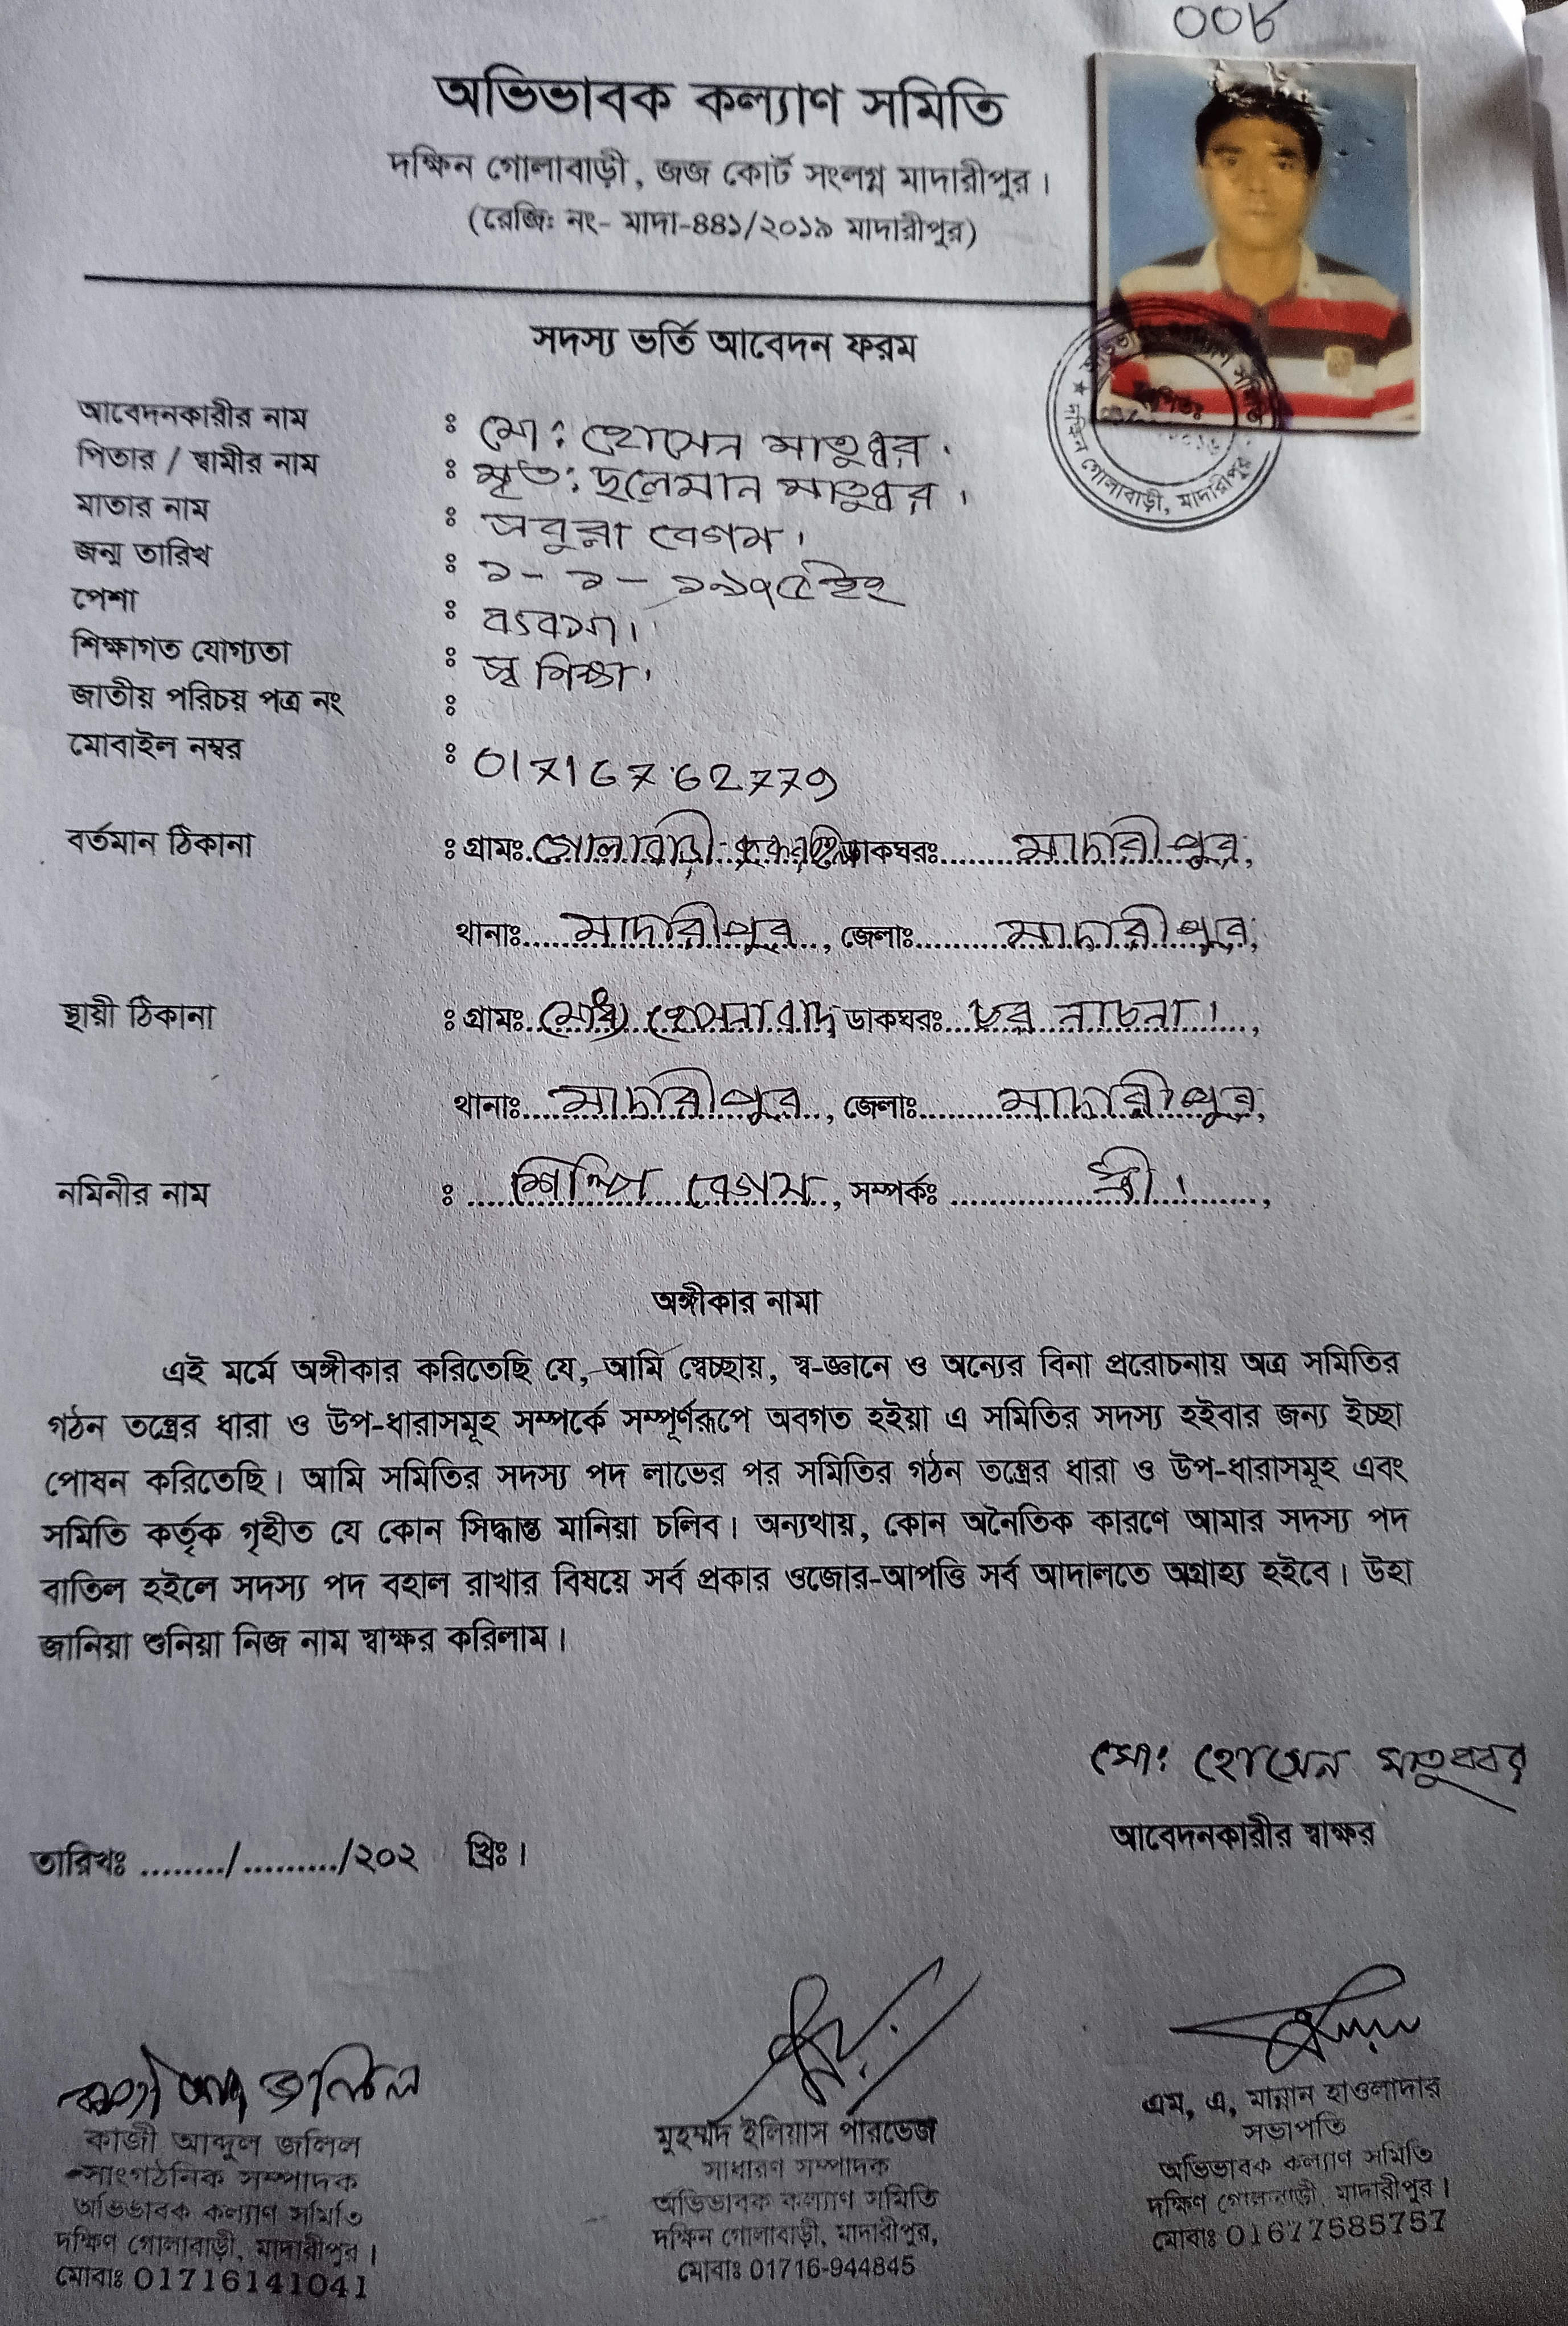 ००৮
অভিভাবক কল্যাণ সমিতি
দক্ষিন গোলাবাড়ী, জজ কোর্ট সংলগ্ন মাদারীপুর।
(রেজিঃ নং- মাদা-৪৪১/২০১৯ মাদারীপুর)
সদস্য ভর্তি আবেদন ফরম
আবেদনকারীর নাম : মো: হোসেন মাতুব্বর।
পিতার / স্বামীর নাম : মৃত: ছলেমান মাতুব্বর।
মাতার নাম : সবুরা বেগম।
জন্ম তারিখ : ১- ১- ১৯৭৫ইং
পেশা : ব্যবসা।
শিক্ষাগত যোগ্যতা : স্ব শিক্ষা।
জাতীয় পরিচয় পত্র নং :
মোবাইল নম্বর : 01716762779
বর্তমান ঠিকানা : গ্রামঃ গোলাবাড়ী ডাকঘরঃ মাদারীপুর,
থানাঃ মাদারীপুর, জেলাঃ মাদারীপুর,
স্থায়ী ঠিকানা : গ্রামঃ হোসনাবাদ ডাকঘরঃ চর নাচনা।,
থানাঃ মাদারীপুর, জেলাঃ মাদারীপুর,
নমিনীর নাম : শিল্পি বেগম, সম্পর্কঃ স্ত্রী।,
অঙ্গীকার নামা
এই মর্মে অঙ্গীকার করিতেছি যে, আমি স্বেচ্ছায়, স্ব-জ্ঞানে ও অন্যের বিনা প্ররোচনায় অত্র সমিতির
গঠন তন্ত্রের ধারা ও উপ-ধারাসমূহ সম্পর্কে সম্পূর্ণরূপে অবগত হইয়া এ সমিতির সদস্য হইবার জন্য ইচ্ছা
পোষন করিতেছি। আমি সমিতির সদস্য পদ লাভের পর সমিতির গঠন তন্ত্রের ধারা ও উপ-ধারাসমূহ এবং
সমিতি কর্তৃক গৃহীত যে কোন সিদ্ধান্ত মানিয়া চলিব। অন্যথায়, কোন অনৈতিক কারণে আমার সদস্য পদ
বাতিল হইলে সদস্য পদ বহাল রাখার বিষয়ে সর্ব প্রকার ওজোর-আপত্তি সর্ব আদালতে অগ্রাহ্য হইবে। উহা
জানিয়া শুনিয়া নিজ নাম স্বাক্ষর করিলাম।
মো: হোসেন মাতুব্বর
আবেদনকারীর স্বাক্ষর
তারিখঃ ......../........./২০২ খ্রিঃ।
কাজী আব্দুল জলিল
কাজী আব্দুল জলিল
সাংগঠনিক সম্পাদক
অভিভাবক কল্যাণ সমিতি
দক্ষিণ গোলাবাড়ী, মাদারীপুর।
মোবাঃ 01716141041
মুহম্মদ ইলিয়াস পারভেজ
সাধারণ সম্পাদক
অভিভাবক কল্যাণ সমিতি
দক্ষিন গোলাবাড়ী, মাদারীপুর,
মোবাঃ 01716-944845
এম, এ, মান্নান হাওলাদার
সভাপতি
অভিভাবক কল্যাণ সমিতি
দক্ষিণ গোলাবাড়ী, মাদারীপুর।
মোবাঃ 01677585757